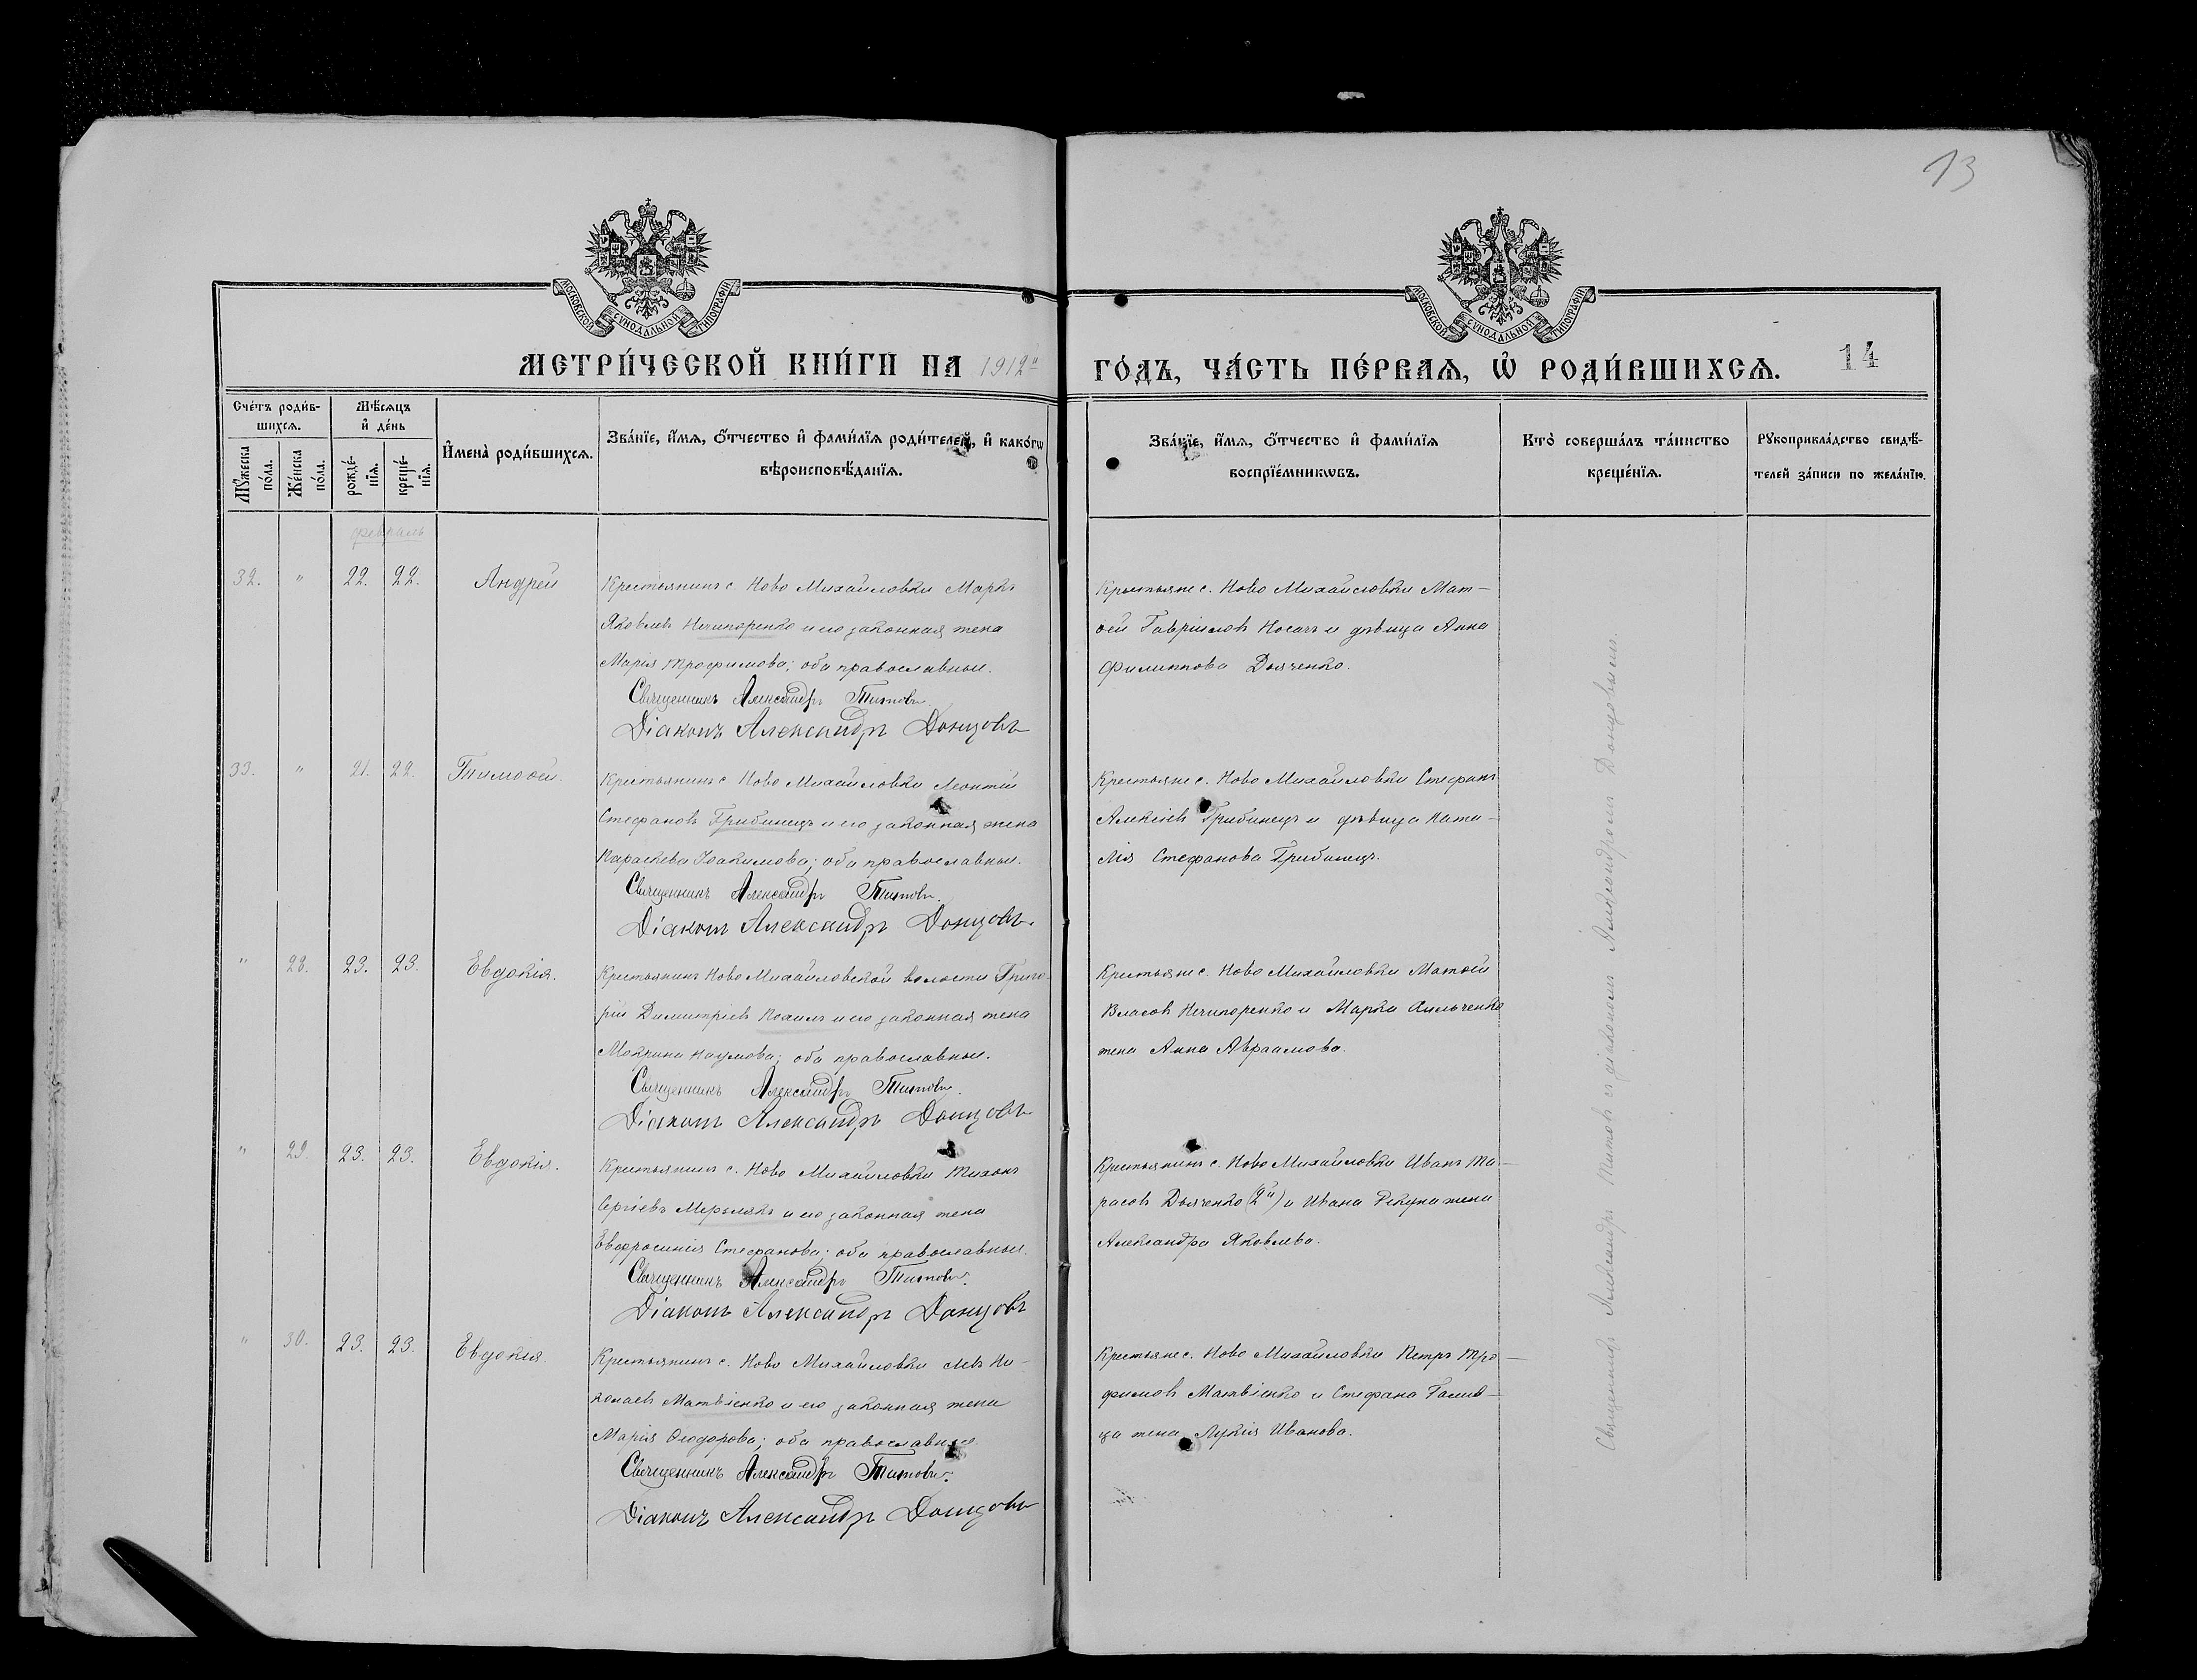 13
МОСКОВСКОЙ СѴНОДАЛЬНОЙ ТИПОГРАФІИ
МОСКОВСКОЙ СѴНОДАЛЬНОЙ ТИПОГРАФІИ
МЕТРИ́ЧЕСКОЙ КНИ́ГИ НА 1912й ГО́ДЪ, ЧА́СТЬ ПЕ́РВАѦ, Ѡ҆ РОДИ́ВШИХСѦ. 14
Сче́тъ роди́в-
шихсѧ.
Мꙋ́жеска
по́ла.
Же́нска
по́ла.
Мѣ́сѧцъ
и҆ де́нь
рожде́-
нїѧ.
креще́-
нїѧ.
И҆мена̀ роди́вшихсѧ.
Зва́нїе, и҆́мѧ, ѻ҆́тчество и҆ фами́лїѧ роди́телей, и҆ како́гѡ
вѣроисповѣ́данїѧ.
Зва́нїе, и҆́мѧ, ѻ҆́тчество и҆ фами́лїѧ
воспрїе́мникѡвъ.
Кто̀ соверша́лъ та́инство
креще́нїѧ.
Рꙋкоприкла́дство свидѣ́-
телей за́писи по жела́нїю.
февраль
32. " 22. 22. Андрей
Крестьянинъ с. Ново Михайловки Маркъ
Яковлевъ Нечипоренко и его законная жена
Марія Трофимова; оба православные.
Священникъ Александръ Титовъ.
Діаконъ Александръ Донцовъ
Крестьяне с. Ново Михайловки Мат-
ѳей Гавріиловъ Носачъ и дѣвица Анна
Филиппова Дьяченко.
33. " 21. 22. Тимоѳей.
Крестьянинъ с. Ново Михайловки Леонтій
Стефановъ Грибинецъ и его законная жена
Параскева Іоакимова; оба православные.
Священникъ Александръ Титовъ.
Діаконъ Александръ Донцовъ.
Крестьяне с. Ново Михайловки Стефанъ
Алексіевъ Грибинецъ и дѣвица Ната-
лія Стефанова Грибинецъ.
" 28. 23. 23. Евдокія.
Крестьянинъ Ново Михайловской волости Григо-
рій Димитріевъ и его законная жена
Мокрина Наумова; оба православные.
Священникъ Александръ Титовъ.
Діаконъ Александръ Донцовъ
Крестьяне с. Ново Михайловки Матѳей
Власовъ Нечипоренко и Марка Хильченко
жена Анна Авраамова.
" 29. 23. 23. Евдокія.
Крестьянинъ с. Ново Михайловки Тихонъ
Сергіевъ Мерзлякъ и его законная жена
Евфросинія Стефанова; оба православные.
Священникъ Александръ Титовъ.
Діаконъ Александръ Донцовъ
Крестьянинъ с. Ново Михайловки Иванъ Та-
расовъ Дьяченко (2й) и Ивана Рекуна жена
Александра Яковлева.
" 30. 23. 23. Евдокія.
Крестьянинъ с. Ново Михайловки Левъ Ни-
колаевъ Матвіенко и его законная жена
Марія Ѳеодорова; оба православные
Священникъ Александръ Титовъ.
Діаконъ Александръ Донцовъ
Крестьяне с. Ново Михайловки Петръ Тро-
фимовъ Матвіенко и Стефана
жена Лукія Иванова.
Священникъ Александръ Титовъ съ діакономъ Александромъ Донцовымъ.